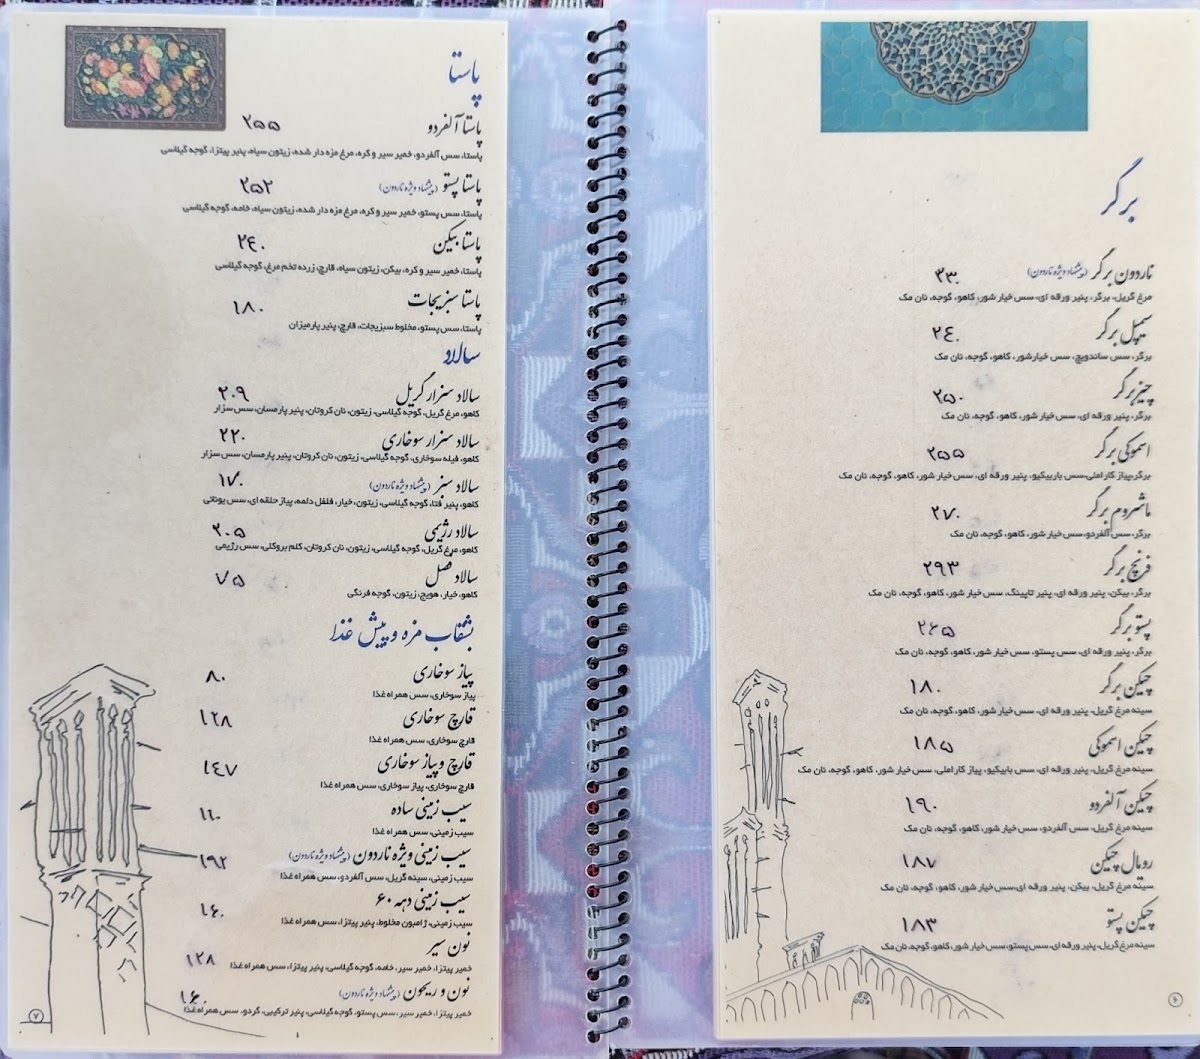 برگر
ناردون برگر (پیشنهاد ویژه ناردون) ۳۳۰
مرغ گریل، برگر، پنیر ورقه ای، سس خیار شور، کاهو، گوجه، نان مک
سیمپل برگر ۲۴۰
برگر، سس ساندویچ، سس خیارشور، کاهو، گوجه، نان مک
چیزبرگر ۲۵۰
برگر، پنیر ورقه ای، سس خیار شور، کاهو، گوجه، نان مک
اسموکی برگر ۲۵۵
برگر،پیاز کاراملی،سس باربیکیو، پنیر ورقه ای، سس خیار شور، کاهو، گوجه، نان مک
ماشروم برگر ۲۷۰
برگر، سس آلفردو،سس خیار شور، کاهو، گوجه، نان مک
فرنچ برگر ۲۹۳
برگر، بیکن، پنیر ورقه ای، پنیر تاپینگ، سس خیار شور، کاهو، گوجه، نان مک
پستو برگر ۲۶۵
برگر، پنیر ورقه ای، سس پستو، سس خیار شور، کاهو، گوجه، نان مک
چیکن برگر ۱۸۰
سینه مرغ گریل، پنیر ورقه ای، سس خیار شور، کاهو، گوجه، نان مک
چیکن اسموکی ۱۸۵
سینه مرغ گریل، پنیر ورقه ای، سس بابیکیو، پیاز کاراملی، سس خیار شور، کاهو، گوجه، نان مک
چیکن آلفردو ۱۹۰
سینه مرغ گریل، سس آلفردو، سس خیار شور، کاهو، گوجه، نان مک
رویال چیکن ۱۸۷
سینه مرغ گریل، بیکن، پنیر ورقه ای،سس خیار شور، کاهو، گوجه، نان مک
چیکن پستو ۱۸۳
سینه مرغ گریل، پنیر ورقه ای، سس پستو،سس خیار شور، کاهو، گوجه، نان مک
۶
پاستا
پاستا آلفردو ۲۵۵
پاستا، سس آلفردو، خمیر سیر و کره، مرغ مزه دار شده، زیتون سیاه، پنیر پیتزا، گوجه گیلاسی
پاستا پستو (پیشنهاد ویژه ناردون) ۲۵۲
پاستا، سس پستو، خمیر سیر و کره، مرغ مزه دار شده، زیتون سیاه، خامه، گوجه گیلاسی
پاستا بیکن ۲۴۰
پاستا، خمیر سیر و کره، بیکن، زیتون سیاه، قارچ، زرده تخم مرغ، گوجه گیلاسی
پاستا سبزیجات ۱۸۰
پاستا، سس پستو، مخلوط سبزیجات، قارچ، پنیر پارمیزان
سالاد
سالاد سزار گریل ۲۰۹
کاهو، مرغ گریل، گوجه گیلاسی، زیتون، نان کروتان، پنیر پارمسان، سس سزار
سالاد سزار سوخاری ۲۲۰
کاهو، فیله سوخاری، گوجه گیلاسی، زیتون، نان کروتان، پنیر پارمسان، سس سزار
سالاد سبز (پیشنهاد ویژه ناردون) ۱۷۰
کاهو، پنیر فتا، گوجه گیلاسی، زیتون، خیار، فلفل دلمه، پیاز حلقه ای، سس یونانی
سالاد رژیمی ۲۰۵
کاهو، مرغ گریل، گوجه گیلاسی، زیتون، نان کروتان، کلم بروکلی، سس رژیمی
سالاد فصل ۷۵
کاهو، خیار، هویج، زیتون، گوجه فرنگی
بشقاب مزه و پیش غذا
پیاز سوخاری ۸۰
پیاز سوخاری، سس همراه غذا
قارچ سوخاری ۱۲۸
قارچ سوخاری، سس همراه غذا
قارچ و پیاز سوخاری ۱۴۷
قارچ سوخاری، پیاز سوخاری، سس همراه غذا
سیب زمینی ساده ۱۱۰
سیب زمینی، سس همراه غذا
سیب زمینی ویژه ناردون (پیشنهاد ویژه ناردون) ۱۹۲
سیب زمینی، سینه گریل، سس آلفردو، سس همراه غذا
سیب زمینی دهه ۶۰ ۱۶۰
سیب زمینی، ژامبون مخلوط، پنیر پیتزا، سس همراه غذا
نون سیر ۱۲۸
خمیر پیتزا، خمیر سیر، خامه، گوجه گیلاسی، پنیر پیتزا، سس همراه غذا
نون و ریحون (پیشنهاد ویژه ناردون) ۱۶۰
خمیر پیتزا، خمیر سیر، سس پستو، گوجه گیلاسی، پنیر ترکیبی، گردو، سس همراه غذا
۷